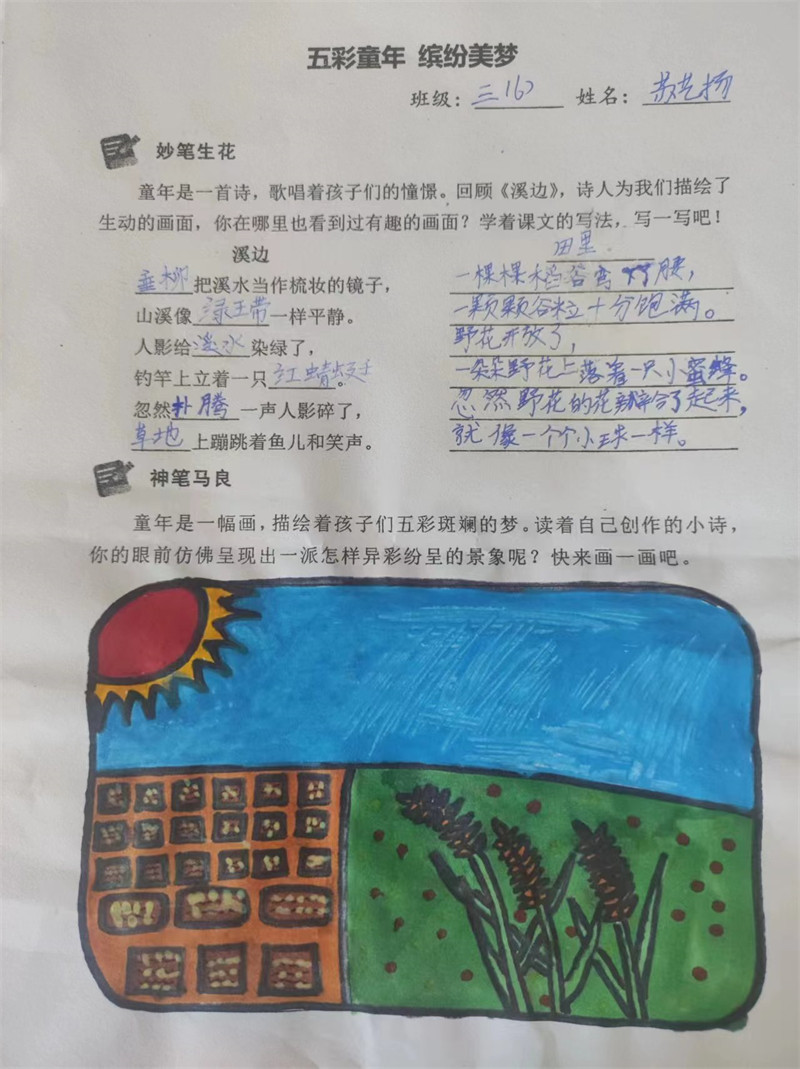 五彩童年 缤纷美梦
班级：三(6) 姓名：苏艺扬
妙笔生花
童年是一首诗，歌唱着孩子们的憧憬。回顾《溪边》，诗人为我们描绘了
生动的画面，你在哪里也看到过有趣的画面？学着课文的写法，写一写吧！
溪边
垂柳把溪水当作梳妆的镜子，
山溪像绿玉带一样平静。
人影给溪水染绿了，
钓竿上立着一只红蜻蜓。
忽然扑腾一声人影碎了，
草地上蹦跳着鱼儿和笑声。
田里
一棵棵稻苔弯了腰，
一颗颗谷粒十分饱满。
野花开放了，
一朵朵野花上落着一只小蜜蜂。
忽然野花的花瓣合了起来，
就像一个个小球一样。
神笔马良
童年是一幅画，描绘着孩子们五彩斑斓的梦。读着自己创作的小诗，
你的眼前仿佛呈现出一派怎样异彩纷呈的景象呢？快来画一画吧。